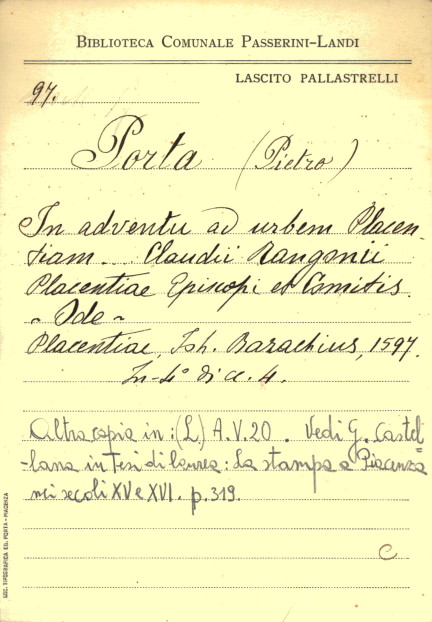 BIBLIOTECA COMUNALE PASSERINI-LANDI
LASCITO PALLASTRELLI
97.
Porta (Pietro)
In adventu ad urbem Placen-
tiam... Claudii Rangonii
Placentiae Episcopi et Comitis.
- Ode -
Placentiae, Joh. Barachius, 1597.
In-4° di c. 4.
Altra copia in: (L) A.V.20. Vedi G. Castel=
-lana in tesi di laurea: La stampa a Piacenza
nei secoli XV e XVI. p. 319.
C
SOC. TIPOGRAFICA ED. PORTA - PIACENZA